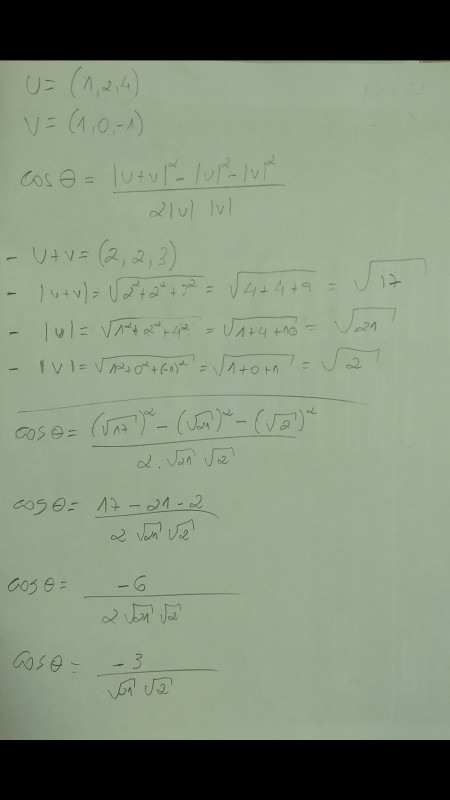 U = (1, 2, 4)
V = (1, 0, -1)
cos θ = |U+V|² - |U|² - |V|² / 2|U| |V|
- U+V = (2, 2, 3)
- |U+V| = √(2²+2²+3²) = √(4+4+9) = √17
- |U| = √(1²+2²+4²) = √(1+4+16) = √21
- |V| = √(1²+0²+(-1)²) = √(1+0+1) = √2
cos θ = (√17)² - (√21)² - (√2)² / 2 · √21 √2
cos θ = 17 - 21 - 2 / 2 √21 √2
cos θ = -6 / 2 √21 √2
cos θ = -3 / √21 √2